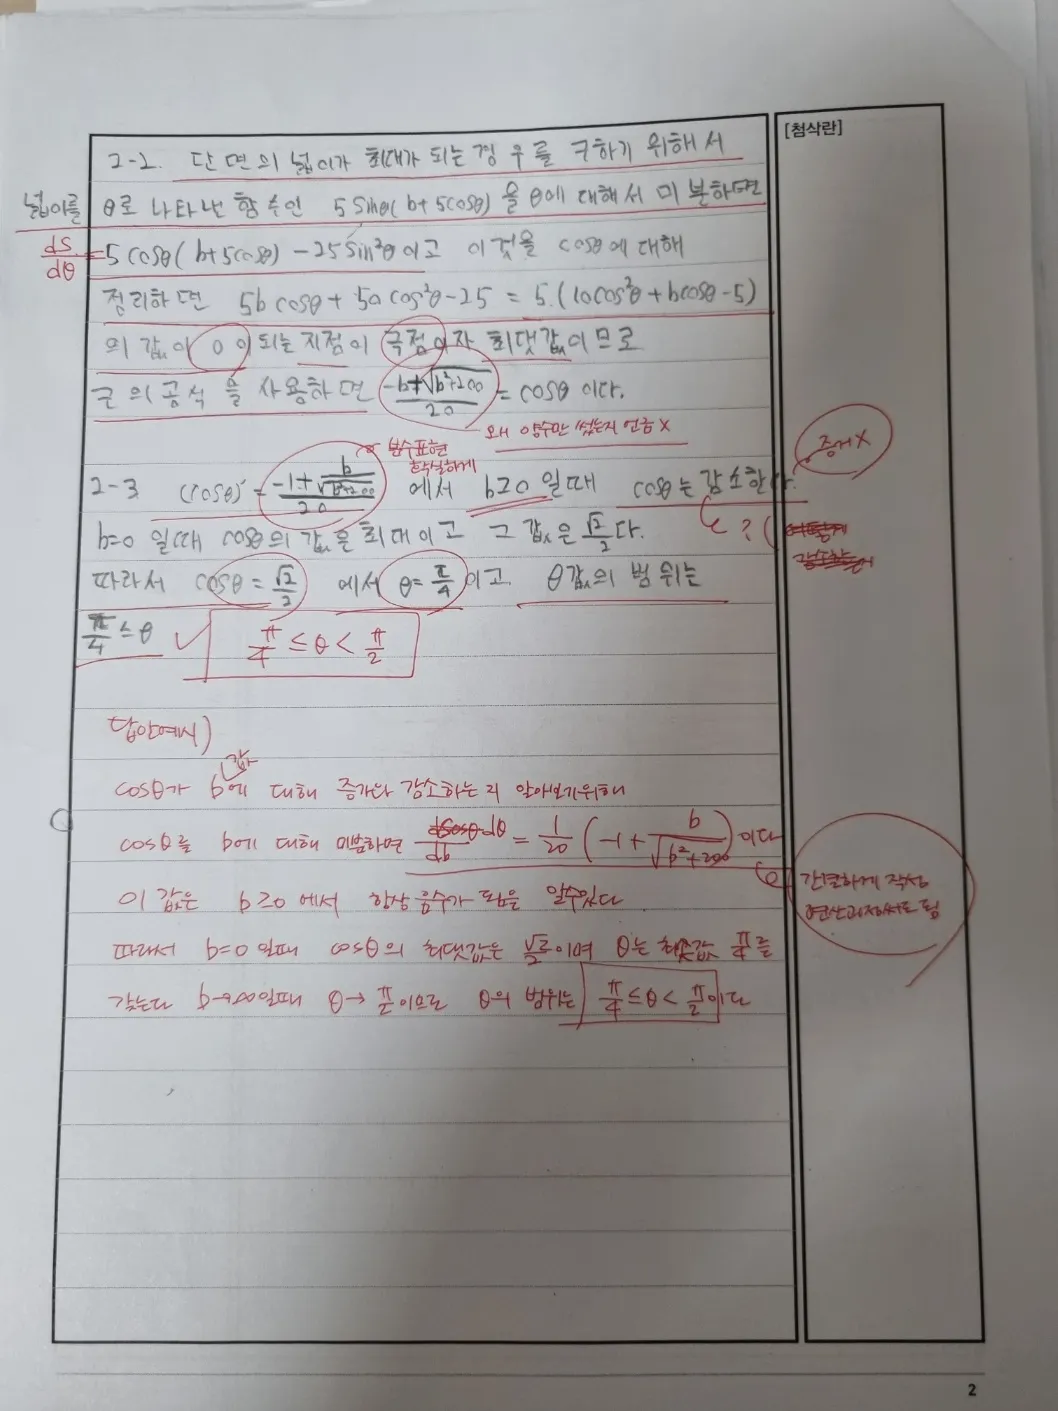 [첨삭란]
2-2. 단면의 넓이가 최대가 되는 경우를 구하기 위해서
넓이를 θ로 나타낸 함수인 5sinθ(b+5cosθ)을 θ에 대해서 미분하면
dS/dθ = 5cosθ(b+5cosθ) - 25sin²θ이고 이것을 cosθ에 대해
정리하면 5bcosθ + 50cos²θ - 25 = 5·(10cos²θ + bcosθ - 5)
의 값이 0이 되는 지점이 극점이자 최댓값이므로
근의 공식을 사용하면 (-b+√(b²+200))/20 = cosθ 이다.
왜 양수만 썼는지 언급 X
분수표현
확실하게
증거 X
2-3 (cosθ)' = (-1+ b/√(b²+200))/20 에서 b≥0 일때 cosθ는 감소한다.
?
b=0 일때 cosθ의 값은 최대이고 그 값은 √2/2다.
따라서 cosθ = √2/2 에서 θ = π/4 이고 θ값의 범위는
π/4 ≤ θ
π/4 ≤ θ < π/2
답안예시)
cosθ가 b값에 대해 증가나 감소하는지 알아보기위해
cosθ를 b에 대해 미분하면 dcosθ dθ/db = 1/20 (-1 + b/√(b²+200)) 이다
간결하게 작성
연산과정써도 됨
이 값은 b≥0에서 항상 음수가 됨을 알수있다
따라서 b=0일때 cosθ의 최댓값은 √2/2이며 θ는 최솟값 π/4를
갖는다 b→∞일때 θ→π/2이므로 θ의 범위는 π/4 ≤ θ < π/2이다
2